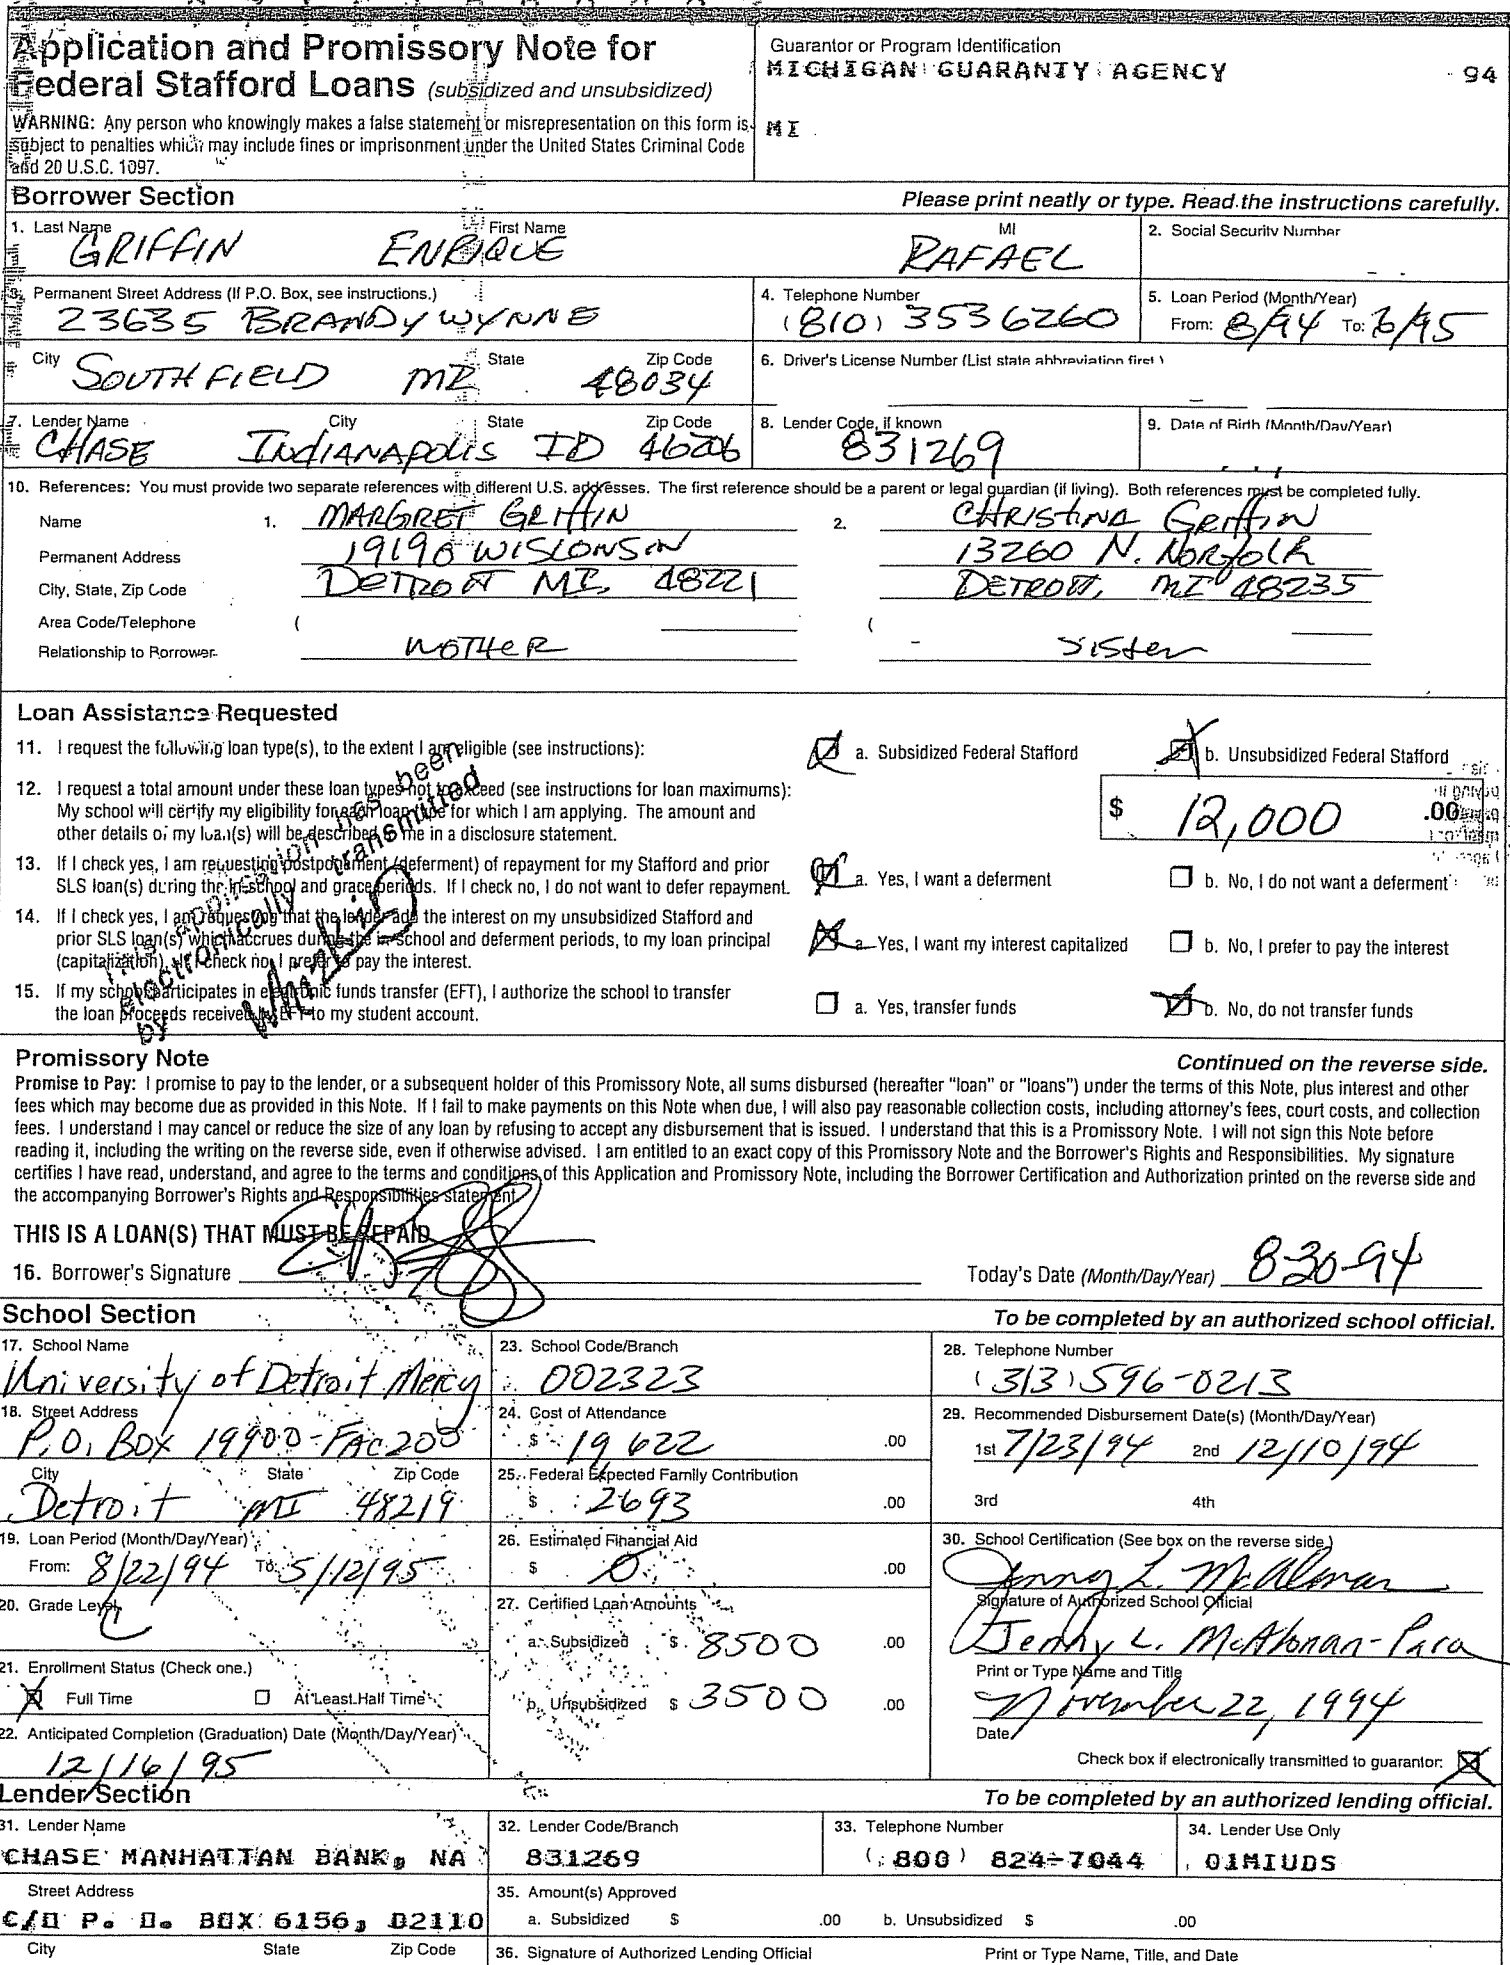 Application and Promissory Note for
Federal Stafford Loans (subsidized and unsubsidized)
WARNING: Any person who knowingly makes a false statement or misrepresentation on this form is
subject to penalties which may include fines or imprisonment under the United States Criminal Code
and 20 U.S.C. 1097.
Guarantor or Program Identification
MICHIGAN GUARANTY AGENCY 94
MI
Borrower Section Please print neatly or type. Read the instructions carefully.
1. Last Name First Name MI
GRIFFIN ENRIQUE RAFAEL
2. Social Security Number
3. Permanent Street Address (If P.O. Box, see instructions.)
23635 BRANDYWYNNE
4. Telephone Number
(810) 353 6260
5. Loan Period (Month/Year)
From: 8/94 To: 6/95
City State Zip Code
SOUTHFIELD MI 48034
6. Driver's License Number (List state abbreviation first.)
7. Lender Name City State Zip Code
CHASE INDIANAPOLIS ID 46206
8. Lender Code, if known
831269
9. Date of Birth (Month/Day/Year)
10. References: You must provide two separate references with different U.S. addresses. The first reference should be a parent or legal guardian (if living). Both references must be completed fully.
Name 1. MARGRET GRIFFIN 2. CHRISTINA GRIFFIN
Permanent Address 19190 WISCONSIN 13260 N. NORFOLK
City, State, Zip Code DETROIT MI, 48221 DETROIT, MI 48235
Area Code/Telephone ( (
Relationship to Borrower MOTHER SISTER
Loan Assistance Requested
11. I request the following loan type(s), to the extent I am eligible (see instructions): a. Subsidized Federal Stafford b. Unsubsidized Federal Stafford
12. I request a total amount under these loan types not to exceed (see instructions for loan maximums):
My school will certify my eligibility for each loan type for which I am applying. The amount and
other details of my loan(s) will be described to me in a disclosure statement.
$ 12,000 .00
13. If I check yes, I am requesting postponement (deferment) of repayment for my Stafford and prior
SLS loan(s) during the in-school and grace periods. If I check no, I do not want to defer repayment.
a. Yes, I want a deferment b. No, I do not want a deferment
14. If I check yes, I am requesting that the lender add the interest on my unsubsidized Stafford and
prior SLS loan(s) which accrues during the in-school and deferment periods, to my loan principal
(capitalization). If I check no, I prefer to pay the interest.
a. Yes, I want my interest capitalized b. No, I prefer to pay the interest
15. If my school participates in electronic funds transfer (EFT), I authorize the school to transfer
the loan proceeds received by EFT to my student account.
a. Yes, transfer funds b. No, do not transfer funds
This application has been
electronically transmitted
by
Promissory Note Continued on the reverse side.
Promise to Pay: I promise to pay to the lender, or a subsequent holder of this Promissory Note, all sums disbursed (hereafter "loan" or "loans") under the terms of this Note, plus interest and other
fees which may become due as provided in this Note. If I fail to make payments on this Note when due, I will also pay reasonable collection costs, including attorney's fees, court costs, and collection
fees. I understand I may cancel or reduce the size of any loan by refusing to accept any disbursement that is issued. I understand that this is a Promissory Note. I will not sign this Note before
reading it, including the writing on the reverse side, even if otherwise advised. I am entitled to an exact copy of this Promissory Note and the Borrower's Rights and Responsibilities. My signature
certifies I have read, understand, and agree to the terms and conditions of this Application and Promissory Note, including the Borrower Certification and Authorization printed on the reverse side and
the accompanying Borrower's Rights and Responsibilities statement.
THIS IS A LOAN(S) THAT MUST BE REPAID
16. Borrower's Signature Today's Date (Month/Day/Year) 8-30-94
School Section To be completed by an authorized school official.
17. School Name
University of Detroit Mercy
23. School Code/Branch
002323
28. Telephone Number
(313) 596-0213
18. Street Address
P.O. BOX 19900-FAC 200
24. Cost of Attendance
$ 19 622 .00
29. Recommended Disbursement Date(s) (Month/Day/Year)
1st 7/23/94 2nd 12/10/94
3rd 4th
City State Zip Code
Detroit MI 48219
25. Federal Expected Family Contribution
$ 2693 .00
19. Loan Period (Month/Day/Year)
From: 8/22/94 To: 5/12/95
26. Estimated Financial Aid
$ 0 .00
30. School Certification (See box on the reverse side.)
Jenny L. McAlonan
Signature of Authorized School Official
Jenny L. McAlonan-Para
Print or Type Name and Title
November 22, 1994
Date
Check box if electronically transmitted to guarantor:
20. Grade Level
C
27. Certified Loan Amounts
a. Subsidized $ 8500 .00
b. Unsubsidized $ 3500 .00
21. Enrollment Status (Check one.)
Full Time At Least Half Time
22. Anticipated Completion (Graduation) Date (Month/Day/Year)
12/16/95
Lender Section To be completed by an authorized lending official.
31. Lender Name
CHASE MANHATTAN BANK, NA
32. Lender Code/Branch
831269
33. Telephone Number
(800) 824-7044
34. Lender Use Only
01MIUDS
Street Address
C/O P. O. BOX 6156, D2110
35. Amount(s) Approved
a. Subsidized $ .00 b. Unsubsidized $ .00
City State Zip Code
36. Signature of Authorized Lending Official Print or Type Name, Title, and Date